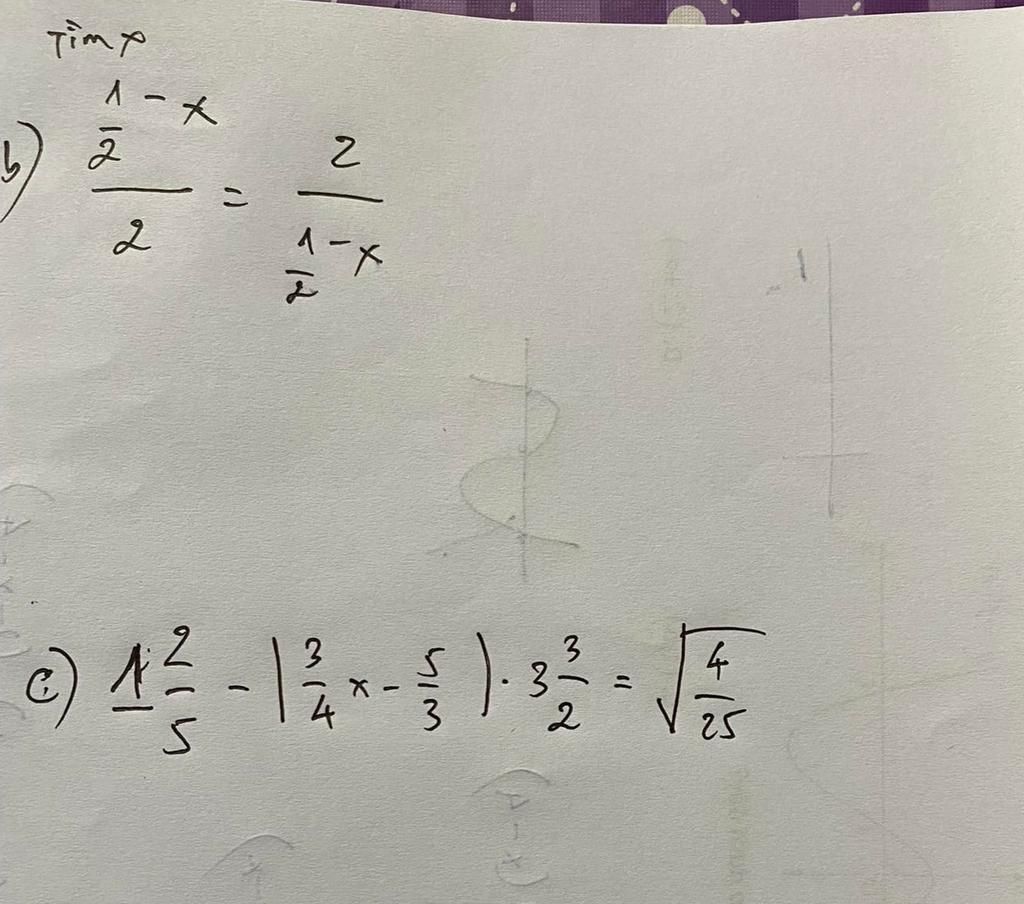 Tìm x
b) (1/2 - x)/2 = 2/(1/2 - x)
c) 1 2/5 - |3/4 x - 5/3| · 3 3/2 = √(4/25)